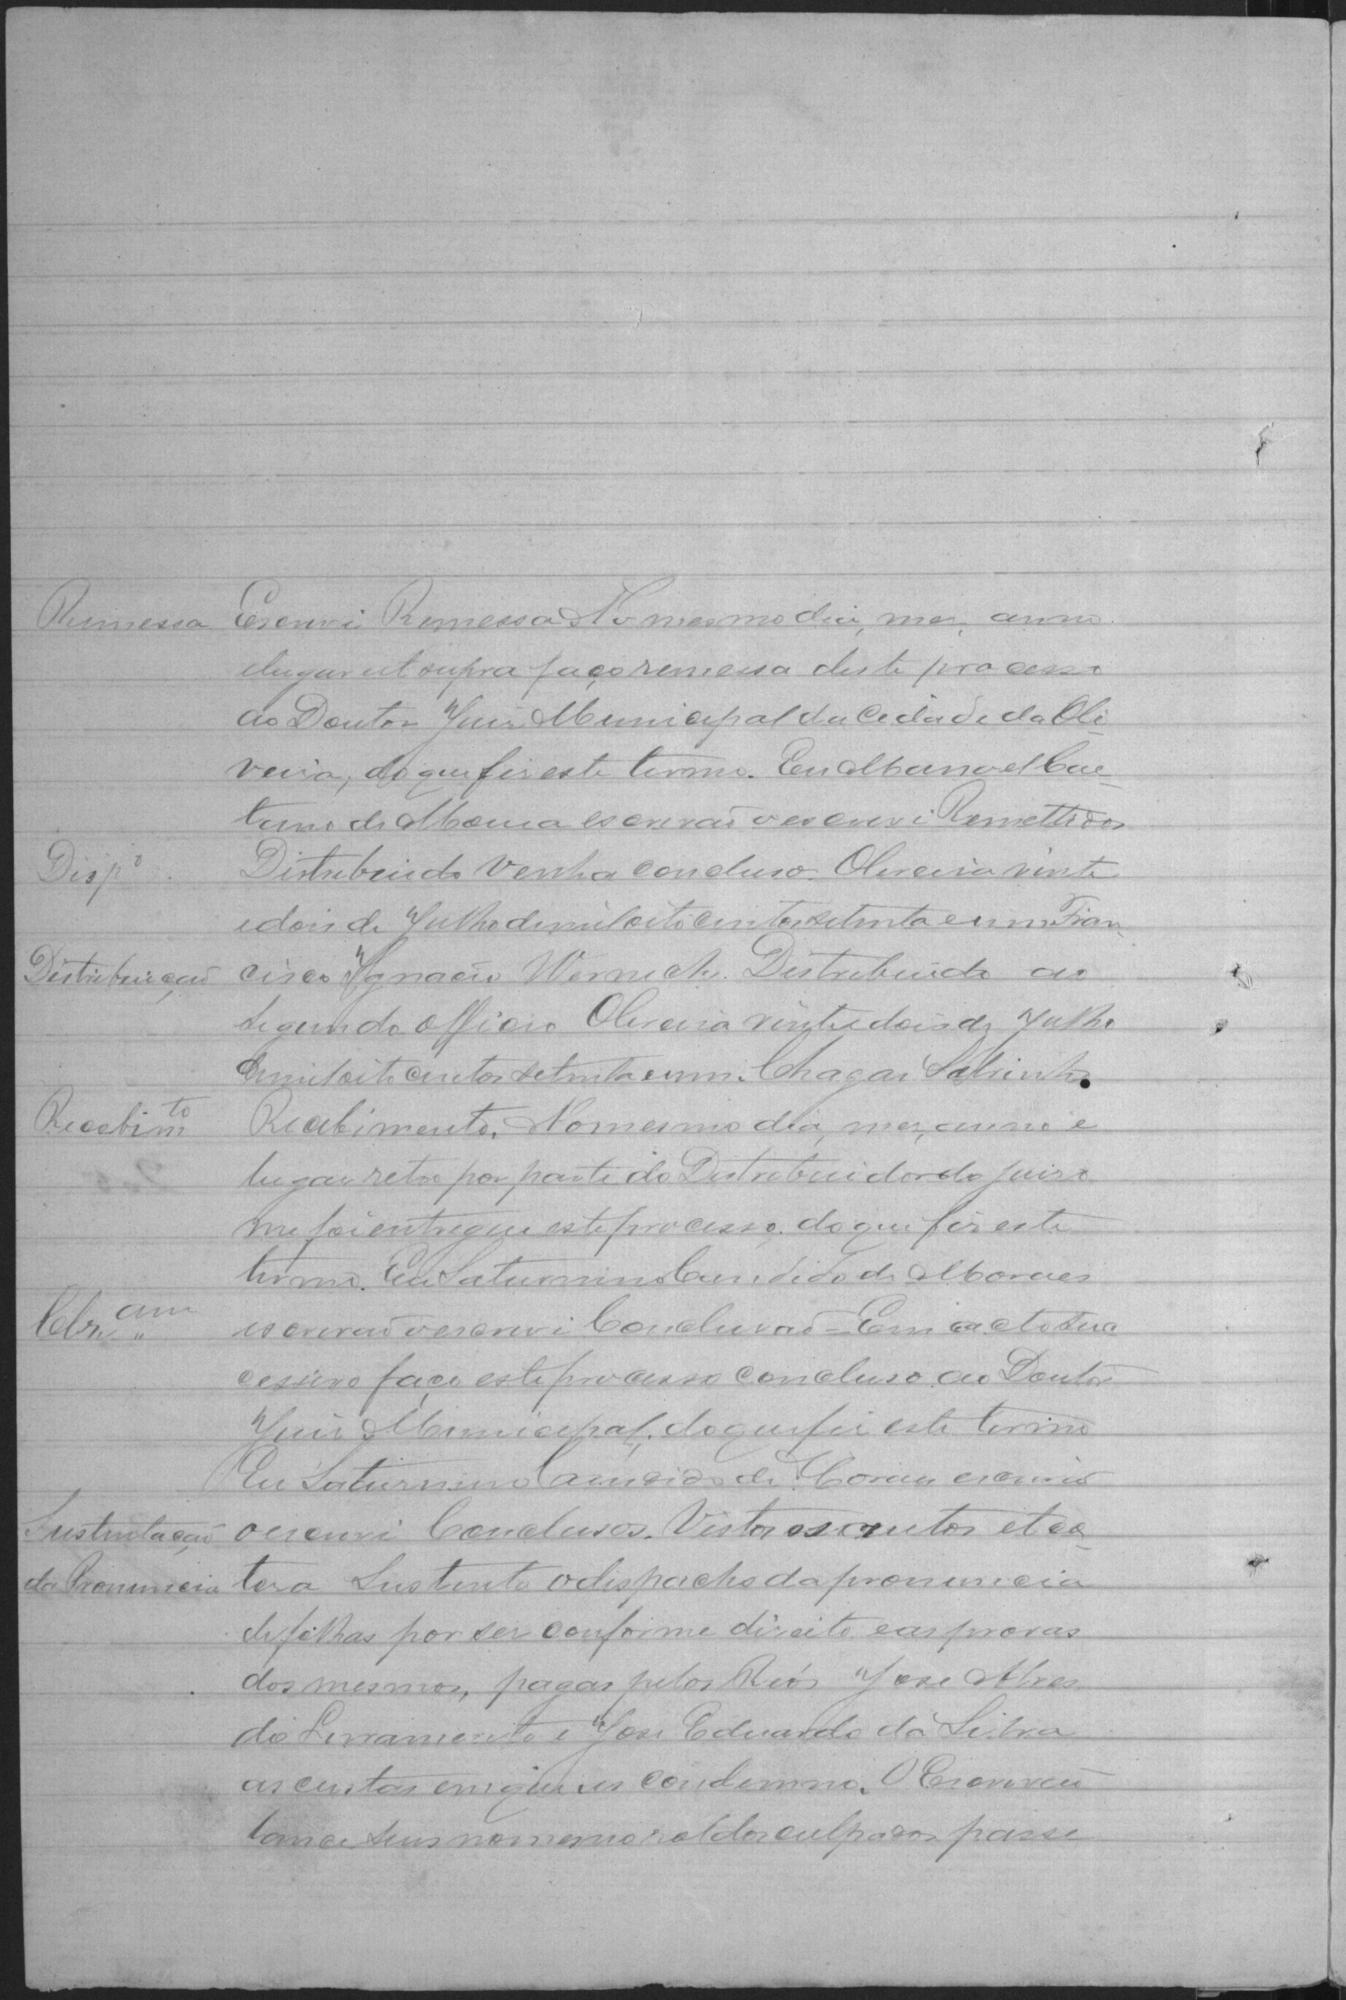 Remessa Escrevi Remessa No mesmo dia, mes, anno
elugar ut supra faço remessa deste processo
ao Doutor Juis Municipal da Cidade da Oli-
veira, do que fis este termo. Eu Manoel Cae-
tano de Moura escrivaõ o escrevi Remettidos
Disp.º Distribuido venha concluso. Oliveira vinte
edois de Julho de mil oito centos setenta e um Fran-
Distribuiçaõ cisco Ignacio Werneck. Distribuido ao
Segundo officio Oliveira vinte e dois de Julho
de mil oito centos setenta e um. Chagas Sobrinho.
Recebim.to Recebimento. No mesmo dia, mes, anno e
lugar retro por parte do Distribuidor do Juiso
me foi entregue este processo, do que fis este
termo. Eu Saturnino Candido de Moraes
Clz.am escrivaõ o escrevi Conclusaõ = Em acto suc
cessivo faço este processo concluso ao Doutor
Juis Municipal, do que fis este termo
Eu Saturnino Candido de Moraes escrivaõ
Sustentaçaõ o escrevi Conclusos. Vistos os autos etcœ-
da Pronuncia tera Sustento o despacho da pronuncia
de folhas por ser conforme direito e as provas
dos mesmos, pagas pelos Réos Jose Alves
do Livramento e Jose Eduardo da Silva
as custas em que os condemno. O Escrivaõ
lance seus nomes no rol dos culpados, passe